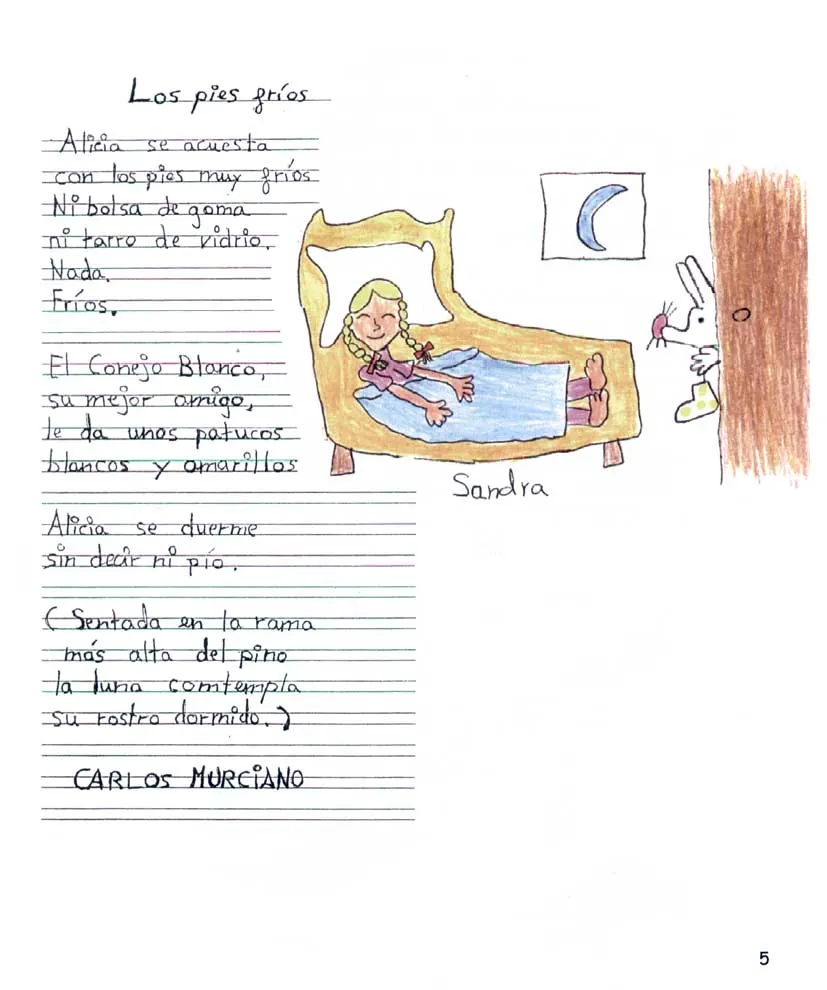 Los pies fríos
Alicia se acuesta
con los pies muy fríos
Ni bolsa de goma
ni tarro de vidrio.
Nada.
Fríos.
El Conejo Blanco,
su mejor amigo,
le da unos patucos
blancos y amarillos
Alicia se duerme
sin decir ni pío.
( Sentada en la rama
más alta del pino
la luna comtempla
su rostro dormido.)
CARLOS MURCIANO
Sandra
5